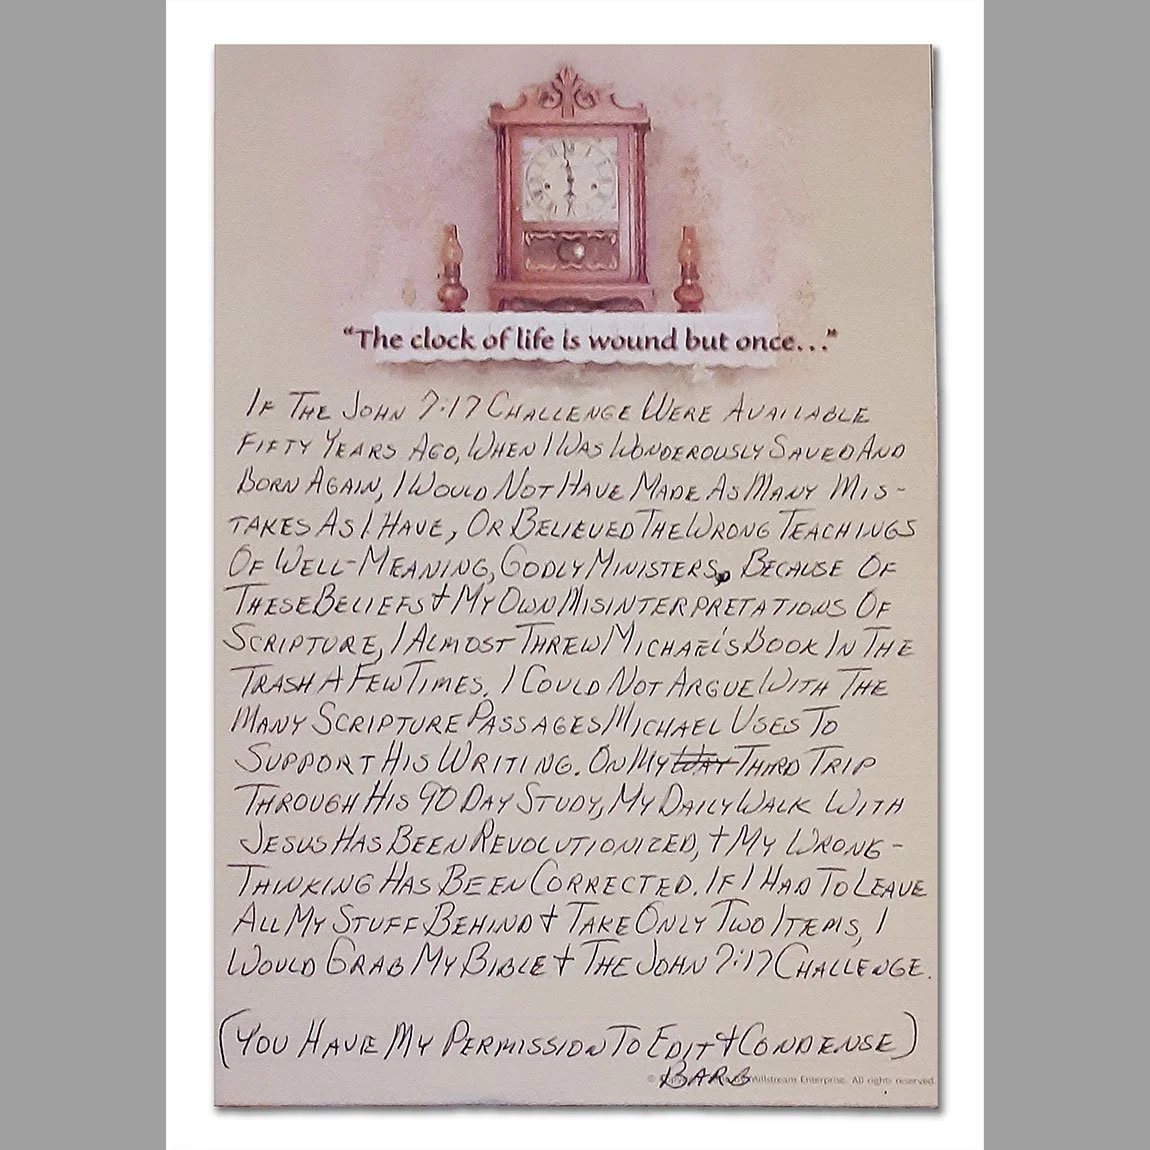 "The clock of life is wound but once..."
IF THE JOHN 7:17 CHALLENGE WERE AVAILABLE
FIFTY YEARS AGO, WHEN I WAS WONDEROUSLY SAVED AND
BORN AGAIN, I WOULD NOT HAVE MADE AS MANY MIS-
TAKES AS I HAVE, OR BELIEVED THE WRONG TEACHINGS
OF WELL-MEANING, GODLY MINISTERS. BECAUSE OF
THESE BELIEFS + MY OWN MISINTERPRETATIONS OF
SCRIPTURE, I ALMOST THREW MICHAEL'S BOOK IN THE
TRASH A FEW TIMES. I COULD NOT ARGUE WITH THE
MANY SCRIPTURE PASSAGES MICHAEL USES TO
SUPPORT HIS WRITING. ON MY WAY THIRD TRIP
THROUGH HIS 90 DAY STUDY, MY DAILY WALK WITH
JESUS HAS BEEN REVOLUTIONIZED, + MY WRONG-
THINKING HAS BEEN CORRECTED. IF I HAD TO LEAVE
ALL MY STUFF BEHIND + TAKE ONLY TWO ITEMS, I
WOULD GRAB MY BIBLE + THE JOHN 7:17 CHALLENGE.
(YOU HAVE MY PERMISSION TO EDIT + CONDENSE)
BARB
© Millstream Enterprise. All rights reserved.